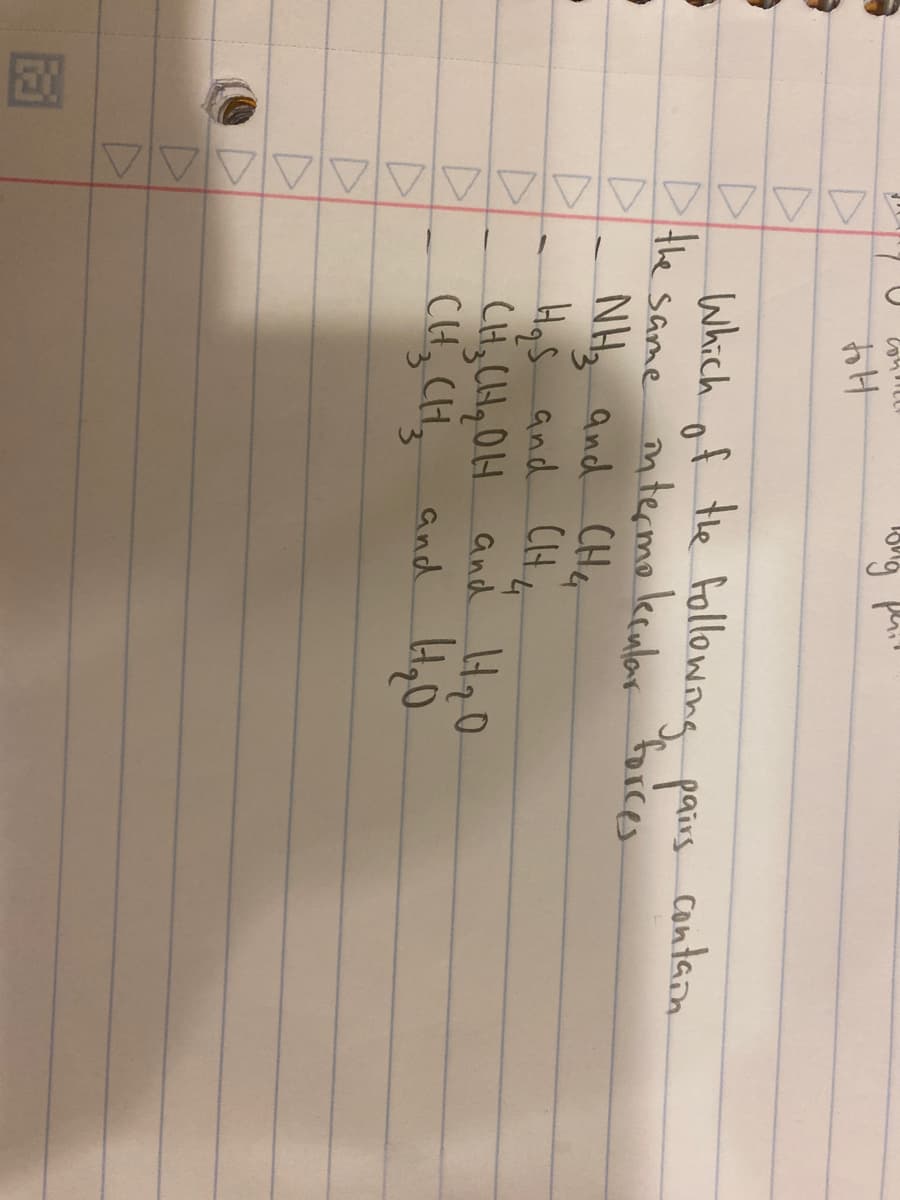 to H
long pair
Which of the following pairs contain
the same intermolecular forces
- NH₃ and CH₄
- H₂S and CH₄
- CH₃CH₂OH and H₂O
- CH₃CH₃ and H₂O